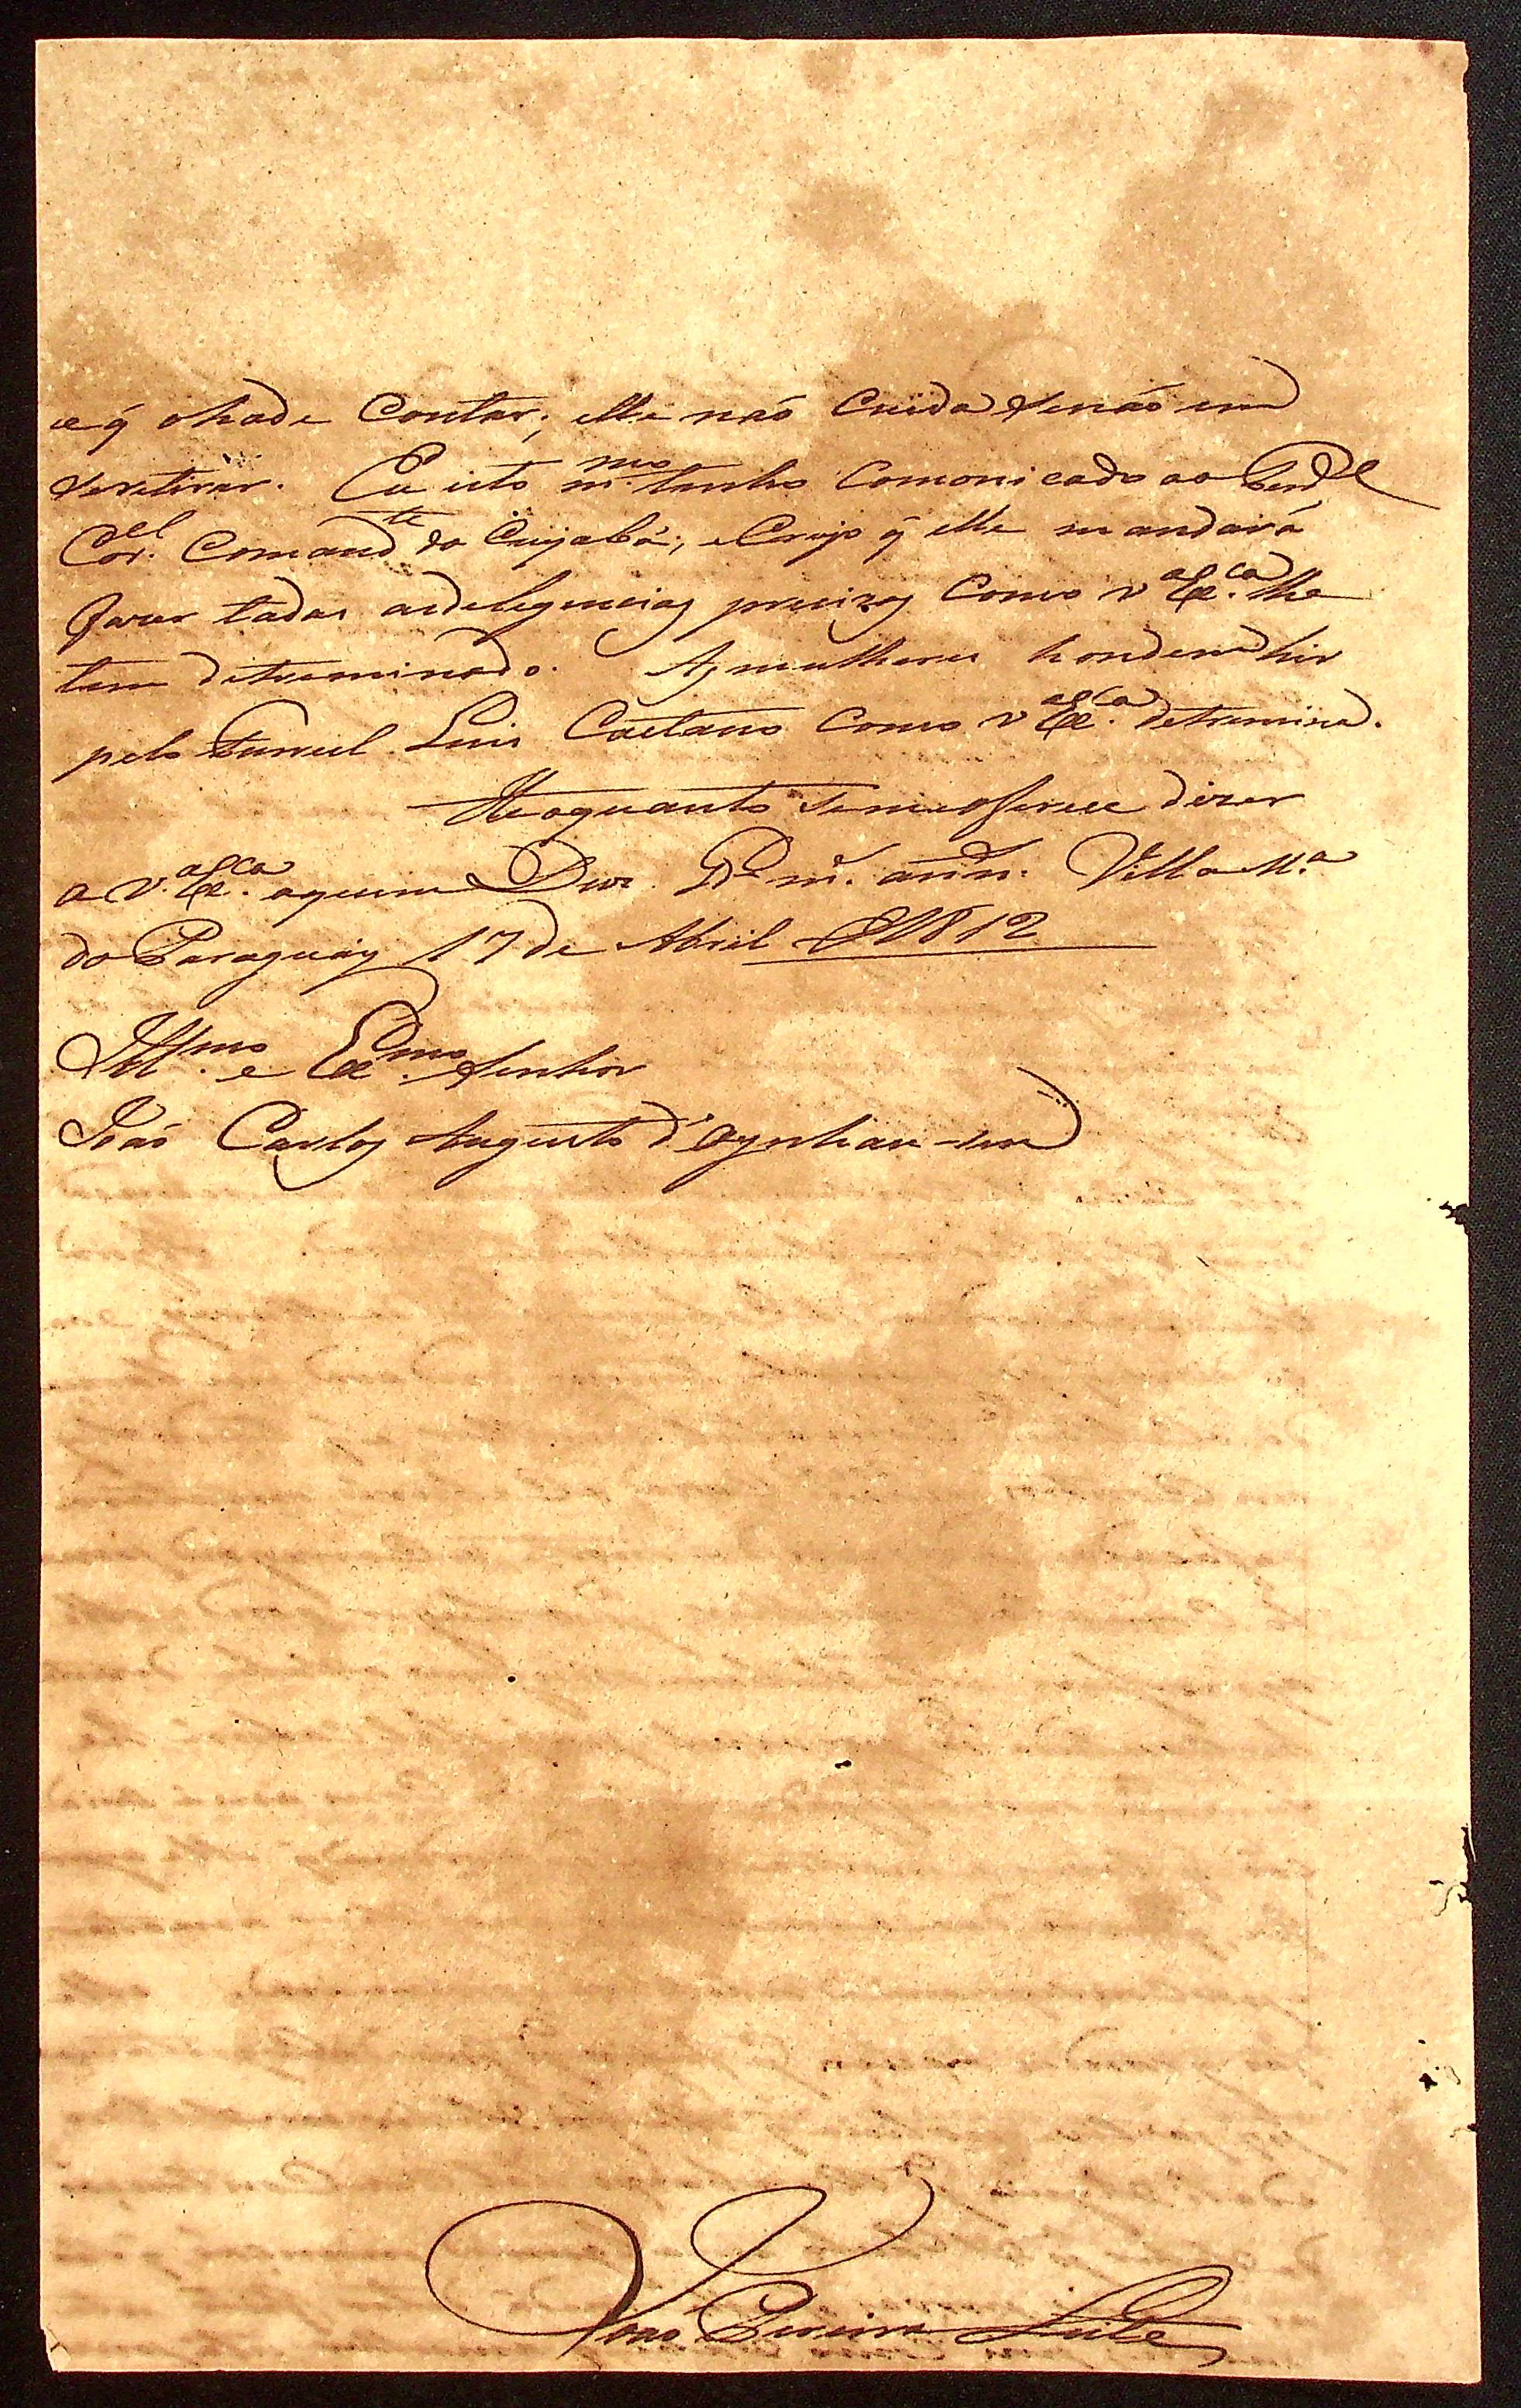 e q̃ o hade Contar; elle não Cuida senão em
se retirar. Eu isto m.mo tenho Comonicado ao
Cor.el Comand.te do Cuyabá; e Creyo q̃ elle mandará
fazer todas as delegencias precizas Como V Ex.ca lhe
tem detreminado. As mulheres hondem hir
pelo Furriel Luis Caetano Como V Ex.ca detremina.
He o quanto Se me oferece dizer
a V. Ex.ca a quem Deos G.de m. ann. Villa M.a
do Paraguay 17 de Abril d 1812
Ill.mo e Ex.mo Senhor
João Carlos Augusto d' Oeynhausen
João Pereira Leite